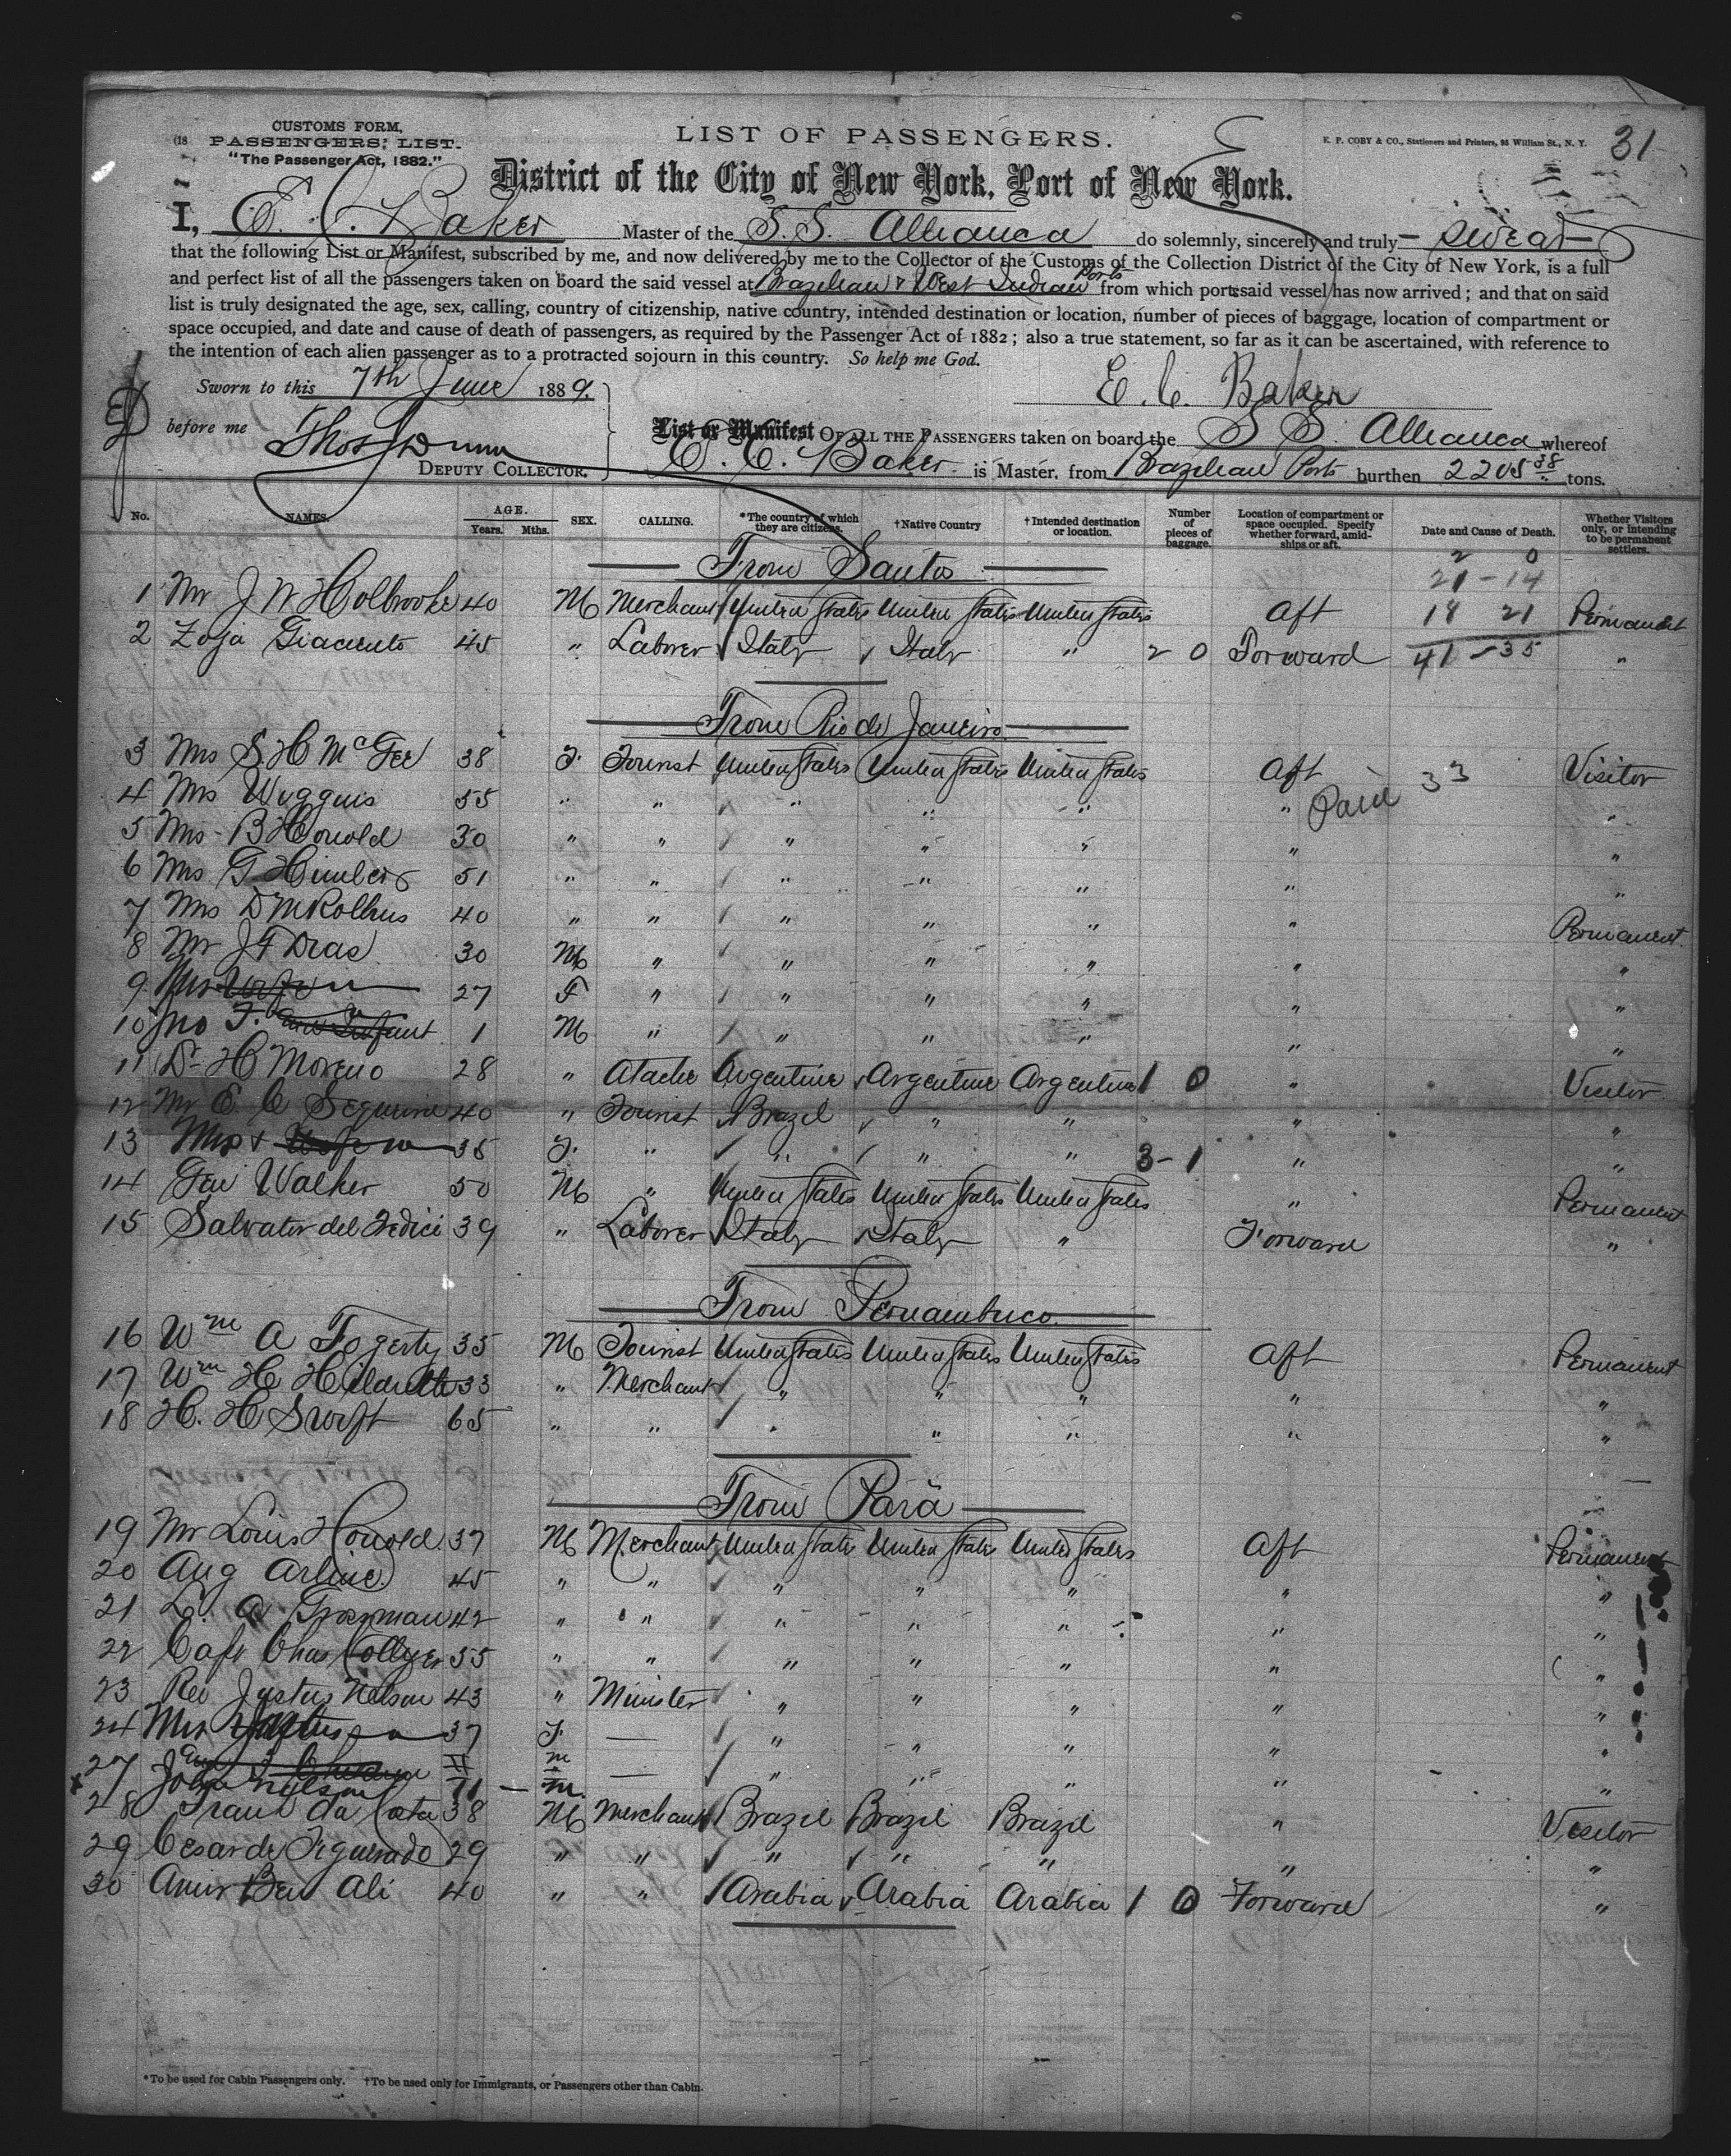 CUSTOMS FORM,
PASSENGERS' LIST.
"The Passenger Act, 1882."
LIST OF PASSENGERS.
E. P. COBY & CO., Stationers and Printers, 95 William St., N. Y.
31
District of the City of New York, Port of New York.
I, E. C. Baker Master of the S.S. Allianca do solemnly, sincerely and truly swear
that the following List or Manifest, subscribed by me, and now delivered by me to the Collector of the Customs of the Collection District of the City of New York, is a full
and perfect list of all the passengers taken on board the said vessel at Brazilian & West Indian Ports from which port said vessel has now arrived; and that on said
list is truly designated the age, sex, calling, country of citizenship, native country, intended destination or location, number of pieces of baggage, location of compartment or
space occupied, and date and cause of death of passengers, as required by the Passenger Act of 1882; also a true statement, so far as it can be ascertained, with reference to
the intention of each alien passenger as to a protracted sojourn in this country. So help me God.
Sworn to this 7th June 1889.
E. C. Baker
before me Thos Dunn
DEPUTY COLLECTOR.
List or Manifest OF ALL THE PASSENGERS taken on board the S S Allianca whereof
E. C. Baker is Master, from Brazilian Ports burthen 2205 38 tons.
No. NAMES. AGE. Years. Mths. SEX. CALLING. *The country of which they are citizens. †Native Country †Intended destination or location. Number of pieces of baggage. Location of compartment or space occupied. Specify whether forward, amidships or aft. Date and Cause of Death. Whether Visitors only, or intending to be permanent settlers.
From Santos
2 0
21 - 14
1 Mr J W Holbrooke 40 M Merchant United States United States United States Aft 18 21 Permanent
2 Zoja Giacento 45 " Laborer Italy Italy " 2 0 Forward 41 - 35 "
From Rio de Janeiro
3 Mrs S. H McGee 38 F. Tourist United States United States United States Aft Visitor
4 Mrs Wiggins 55 " " " " " " 33 "
5 Mrs B Honold 30 " " " " " " "
6 Mrs G Himbers 51 " " " " " " "
7 Mrs D M Rollins 40 " " " " " " Permanent
8 Mr J F Dias 30 M " " " " " "
9 Mrs 27 F " " " " " "
10 Jno F. Infant 1 M " " " " " "
11 Dr H Moreno 28 " Atache Argentine Argentine Argentine 1 0 " Visitor
12 Mr E C Sequrine 40 " Tourist Brazil " " " "
13 Mrs & 35 F. " " " " 3 - 1 " "
14 Gen Walker 50 M " United States United States United States " Permanent
15 Salvator del Fedici 39 " Laborer Italy Italy " Forward "
From Pernambuco
16 Wm A Fogerty 35 M Tourist United States United States United States Aft Permanent
17 Wm H Hildreth 33 " Merchant " " " " "
18 H. H Swift 65 " " " " " " "
From Parà
19 Mr Louis Honold 37 M Merchant United States United States United States Aft Permanent
20 Aug Arline 45 " " " " " " "
21 L. A Grosman 42 " " " " " " "
22 Capt Chas Collyer 55 " " " " " " "
23 Rev Justus Nelson 43 " Minister " " " " "
24 Mrs 37 F. — " " " " "
27 John Nelson 11 m — " " " " "
28 Frank da Costa 38 M Merchant Brazil Brazil Brazil " Visitor
29 Cesar de Figuerado 29 " " " " " " "
30 Amir Ben Ali 40 " " Arabia Arabia Arabia 1 0 Forward "
*To be used for Cabin Passengers only. †To be used only for Immigrants, or Passengers other than Cabin.